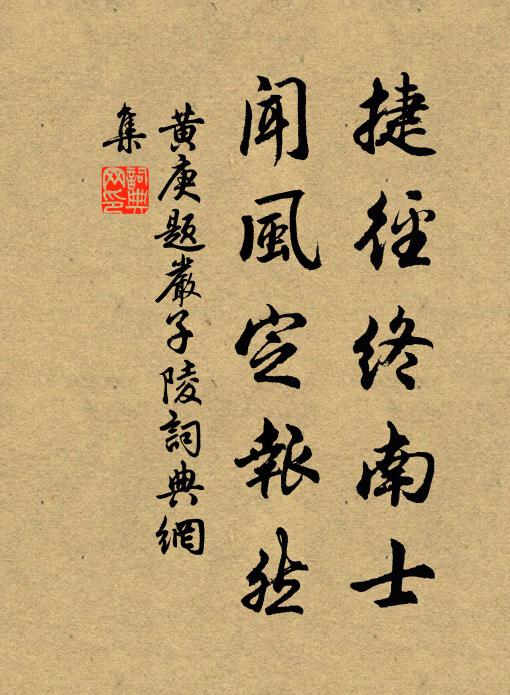 捷徑終南士
聞風定赧然
黃庚題嚴子陵詞典網
集
詞典
网印